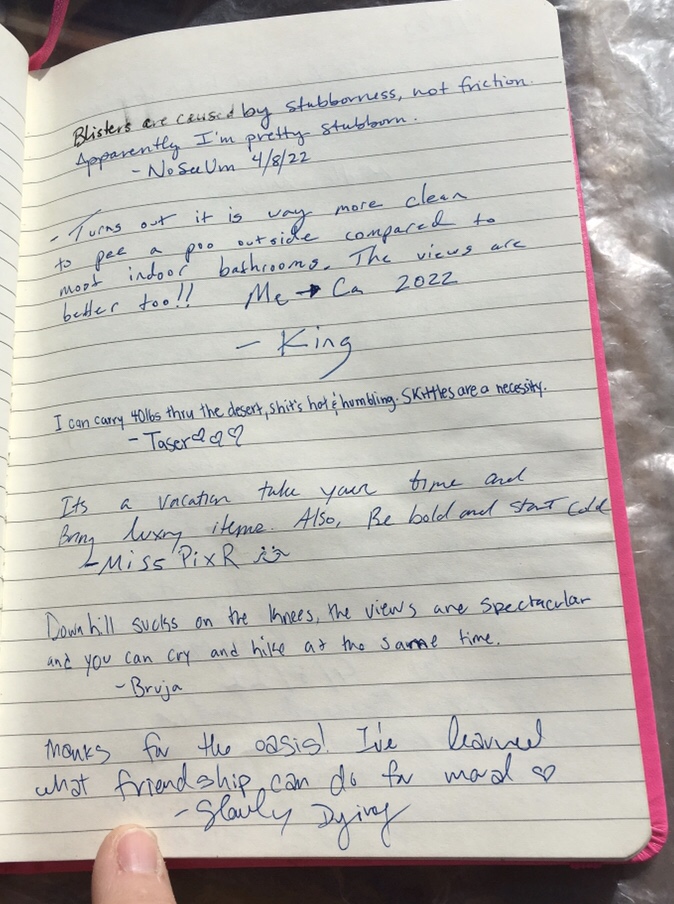 Blisters are caused by stubborness, not friction.
Apparently I'm pretty stubborn.
- NoSeeUm 4/8/22
- Turns out it is way more clean
to pee a poo outside compared to
most indoor bathrooms. The views are
better too!! Me → Ca 2022
- King
I can carry 40lbs thru the desert, shit's hot & humbling. Skittles are a necessity.
- Taser♡♡♡
Its a vacation take your time and
Bring luxry items. Also, Be bold and start Cold
- Miss PixR
Downhill sucks on the knees, the views are spectacular
and you can cry and hike at the same time.
- Bruja
Thanks for the oasis! I've learned
what friendship can do for moral ♡
- Slowly Dying